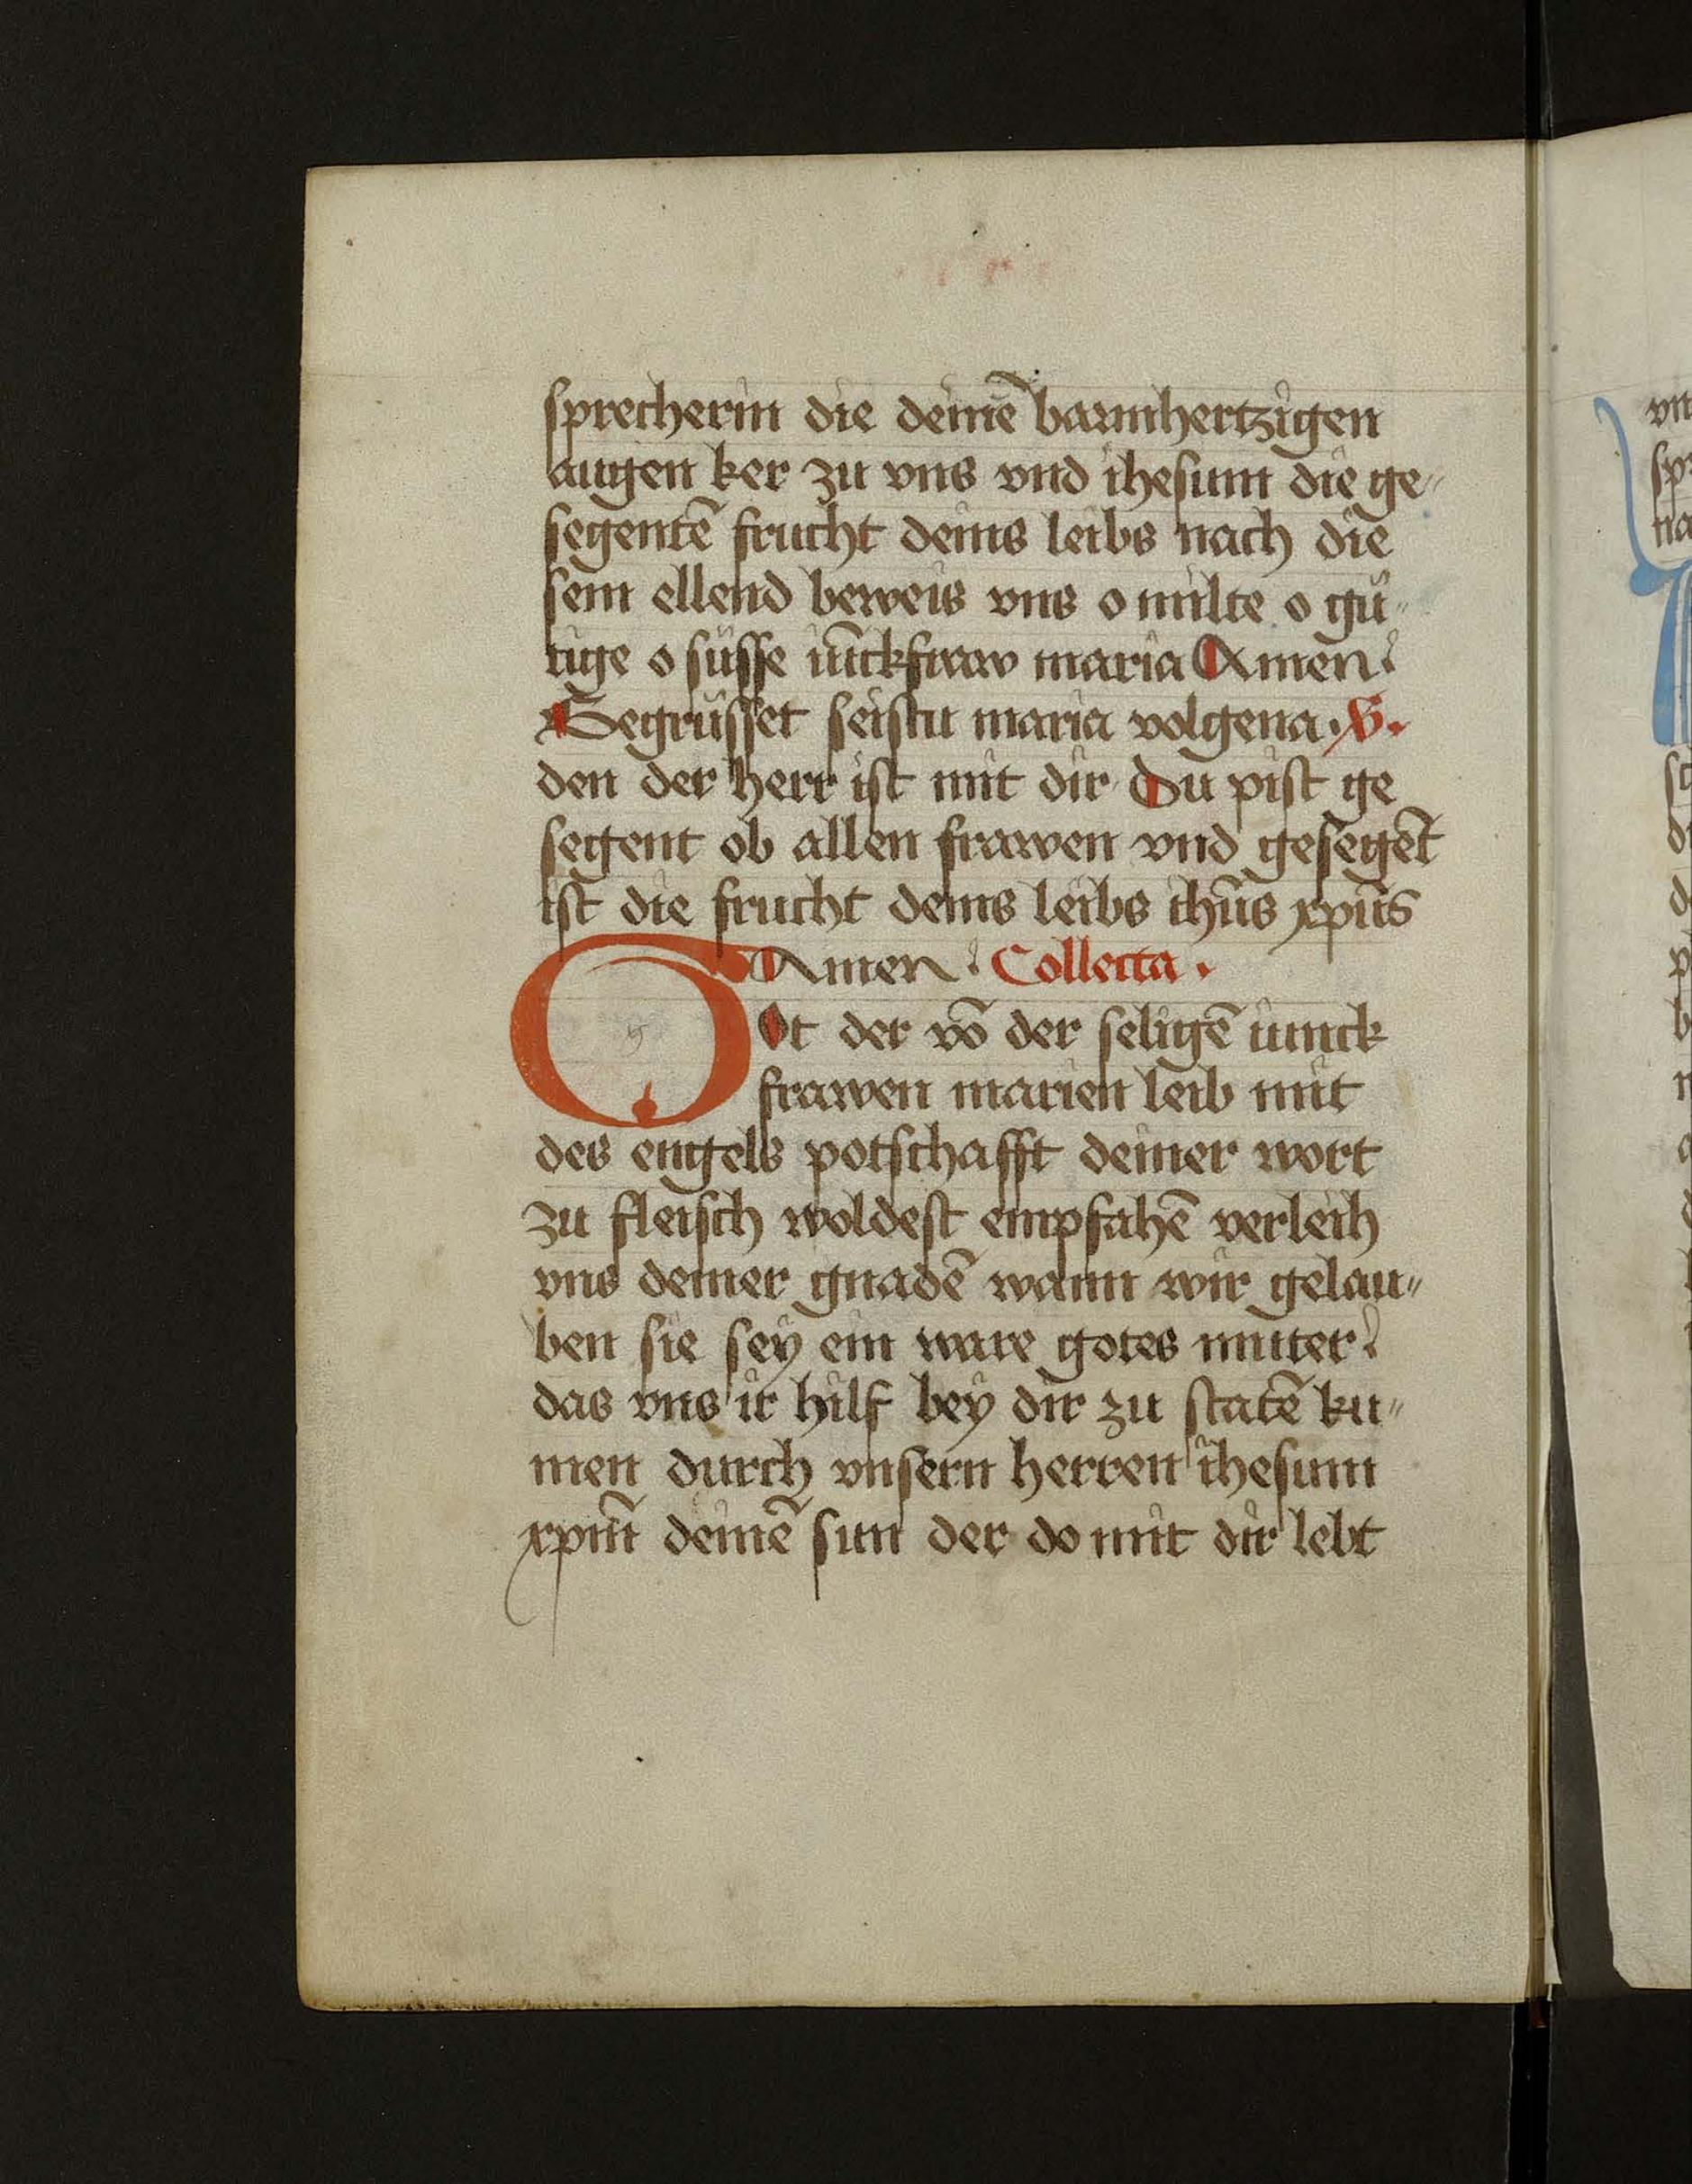 sprecherin die deinē barmhertzigen
augen ker zu vns vnd ihesum die ge〃
segentē frucht deins leibs nach die
sem ellend beweis vns o milte o gü〃
tige o süsse iūckfraw maria Amen
Gegrüsset seistu maria volgena. V.
den der herr ist mit dir Du pist ge
segent ob allen frawen vnd gesegēt
ist die frucht deins leibs ihūs xpūs
Amen. Collecta.
Ot der vō der seligē iunck
frawen marien leib mit
des engels potschafft deiner wort
zu fleisch woldest empfahē verleih
vns deiner gnadē wann wir gelau〃
ben sie sey ein ware gotes muter
das vns ir hilf bey dir zu statē ku〃
men durch vnsern herren ihesum
xpm̄ deinē sun der do mit dir lebt
vn
sp
na